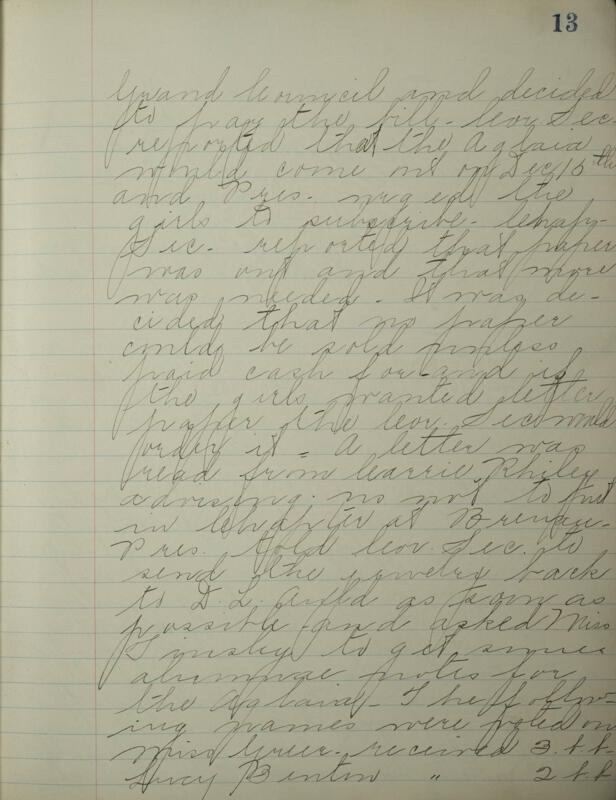 13
Grand Council and decided
to pay the bill. Cor. Sec.
reported that the Aglaia
would come out on Dec. 15th
and Pres. urged the
girls to subscribe. Chap.
Sec. reported that paper
was out and that more
was needed. It was de-
cided that no paper
could be sold unless
paid cash for and if
the girls wanted letter
paper the Cor. Sec. would
order it = A letter was
read from Carrie
advising us not to put
in Chapter at Brenau.
Pres. told Cor. Sec. to
send the jewelry back
to D. L. Auld as soon as
possible and asked Miss
Tinsley to get some
alumnae notes for
the Aglaia. The follow-
ing names were voted on
Miss Greer - received 3 b.b.
Lucy Benton " 2 b.b.